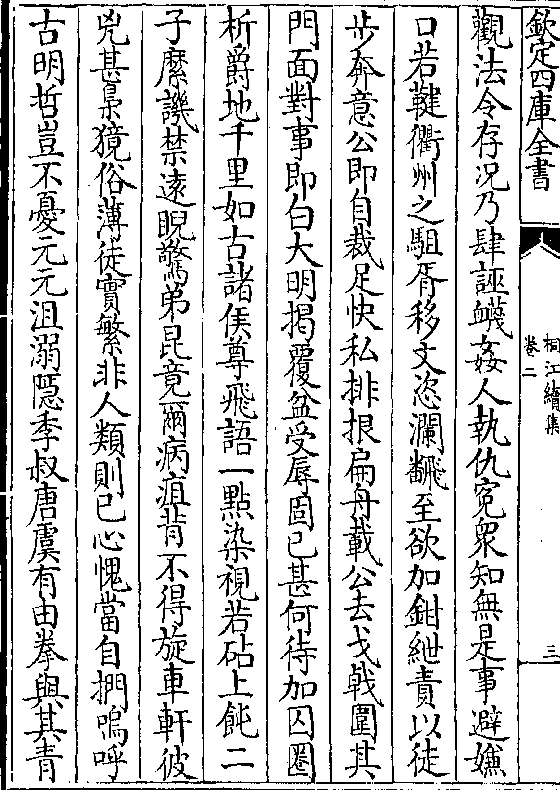 欽定四庫全書
桐江續集
卷二
三
觀法令存况乃肆誣衊姦人執仇寃衆知無是事避嫌
口若鞬衢州之駔胥移文恣瀾飜至欲加鉗紲責以徒
步奔意公即自裁足快私排根扁舟載公去戈戟圍其
門面對事即白大明揭覆盆受辱固已甚何待加囚圏
析爵地千里如古諸侯尊飛語一點染視若砧上飩二
子縻譏禁遠睨驚弟昆竟爾病疽背不得旋車軒彼
兇甚梟獍俗薄徒實繁非人類則已心愧當自捫嗚呼
古明哲豈不憂元元沮溺隱季叔唐虞有由拳與其青